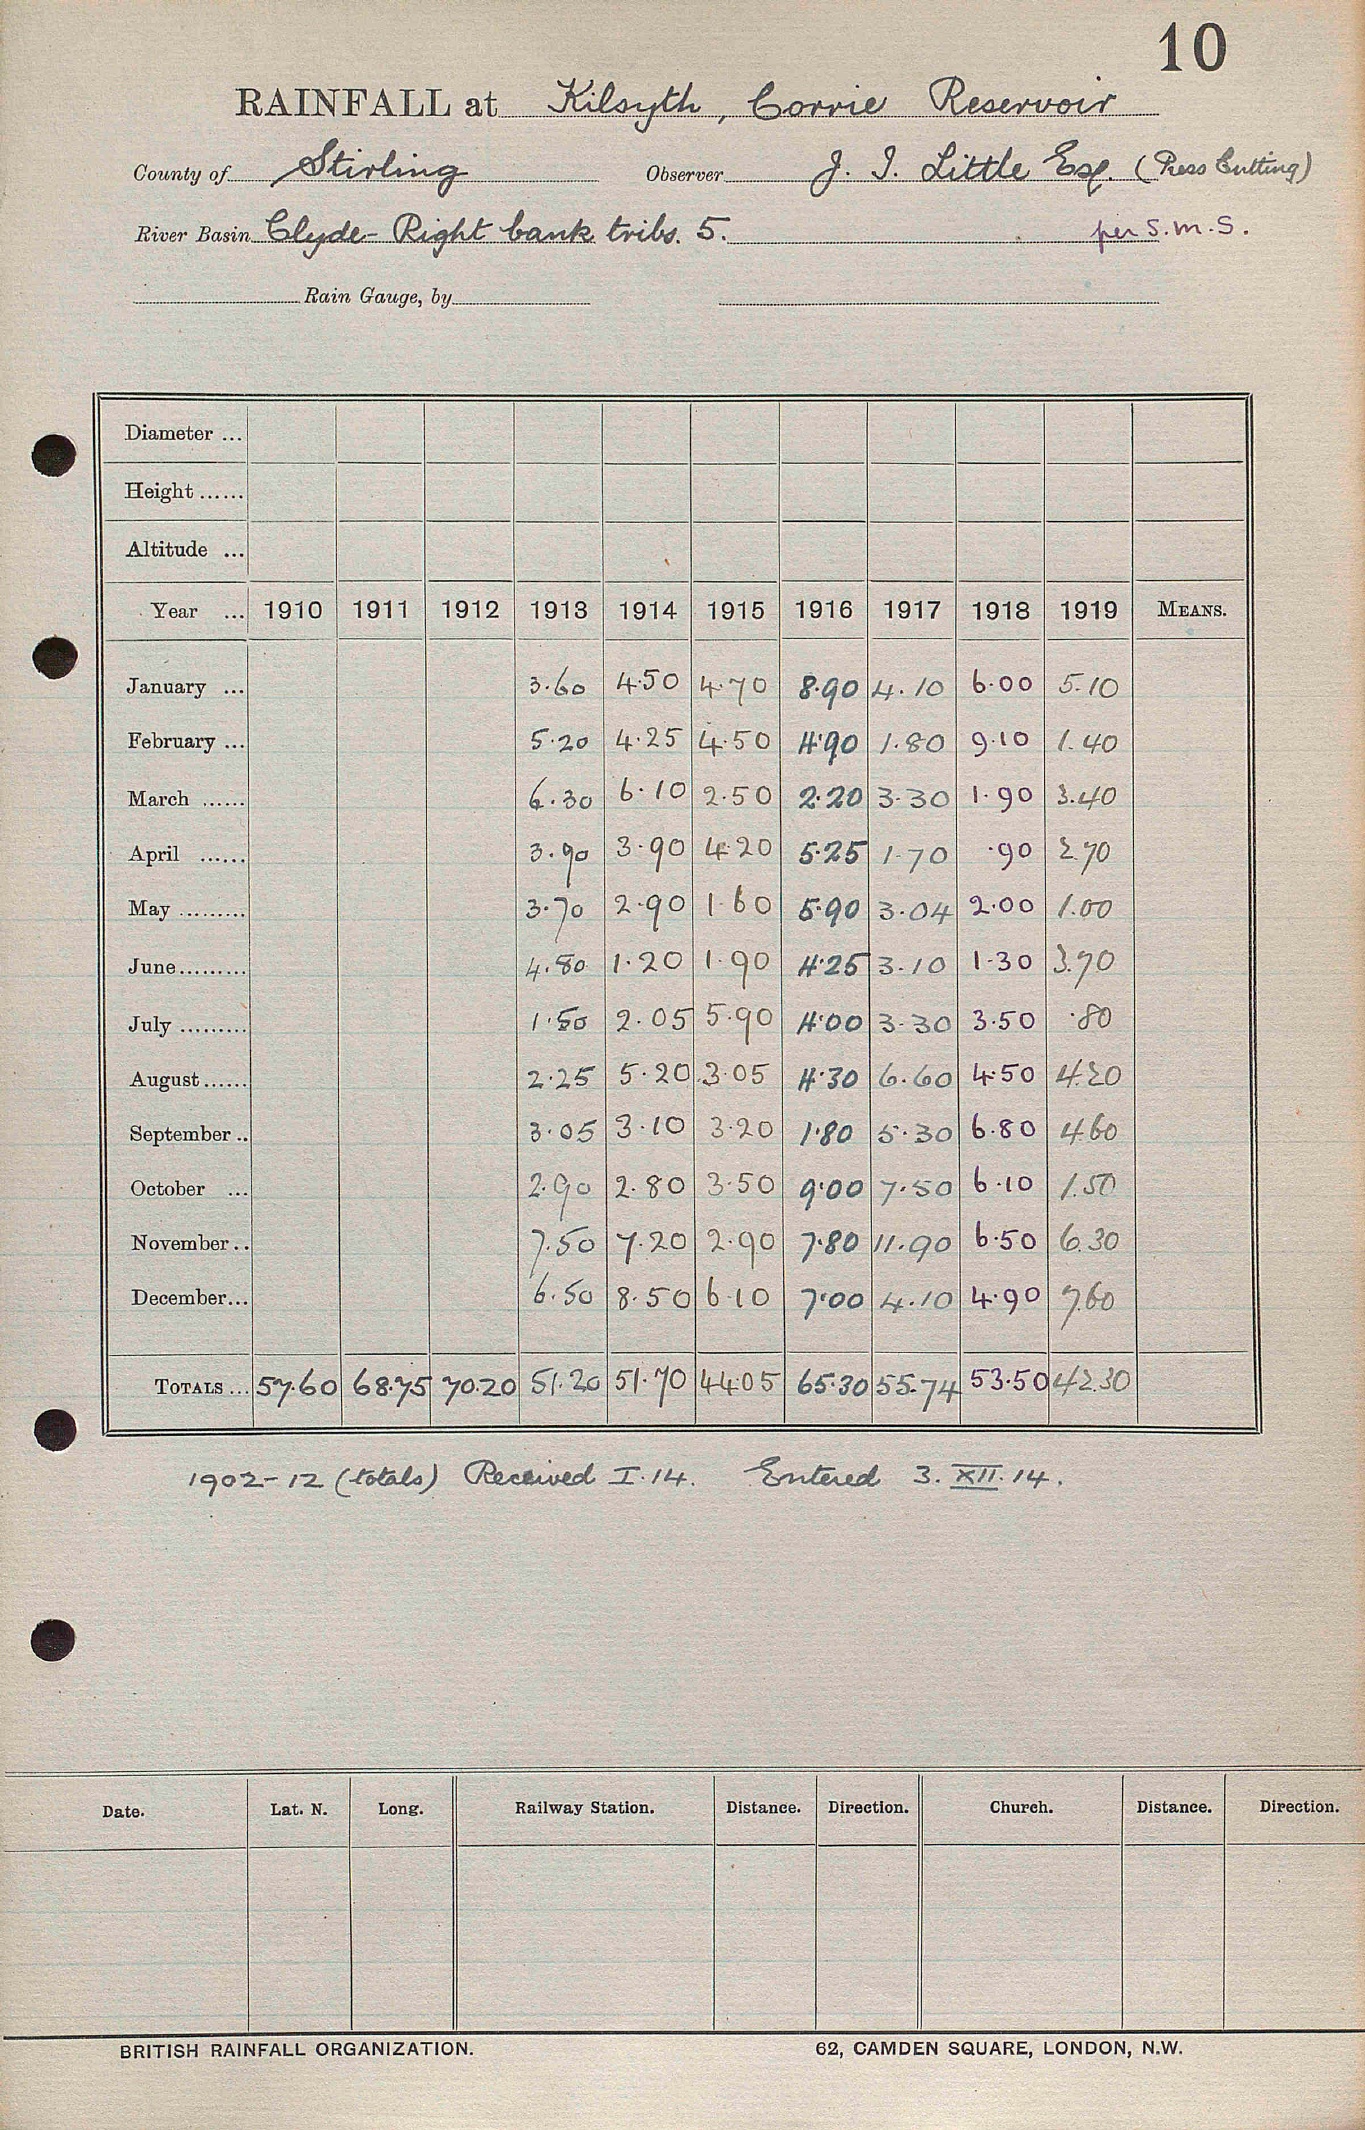 10
RAINFALL at Kilsyth, Corrie Reservoir
County of Stirling Observer J. I. Little Esq. (Press Cutting)
River Basin Clyde - Right bank tribs. 5. per S.M.S.
Rain Gauge, by
Diameter ...
Height ......
Altitude ...
Year ... 1910 1911 1912 1913 1914 1915 1916 1917 1918 1919 MEANS.
January ... 3.60 4.50 4.70 8.90 4.10 6.00 5.10
February ... 5.20 4.25 4.50 4.90 1.80 9.10 1.40
March ...... 6.30 6.10 2.50 2.20 3.30 1.90 3.40
April ...... 3.90 3.90 4.20 5.25 1.70 .90 2.70
May ......... 3.70 2.90 1.60 5.90 3.04 2.00 1.00
June ......... 4.80 1.20 1.90 4.25 3.10 1.30 3.70
July ......... 1.50 2.05 5.90 4.00 3.30 3.50 .80
August ...... 2.25 5.20 3.05 4.30 6.60 4.50 4.20
September .. 3.05 3.10 3.20 1.80 5.30 6.80 4.60
October ... 2.90 2.80 3.50 9.00 7.50 6.10 1.50
November .. 7.50 7.20 2.90 7.80 11.90 6.50 6.30
December ... 6.50 8.50 6.10 7.00 4.10 4.90 7.60
TOTALS ... 57.60 68.75 70.20 51.20 51.70 44.05 65.30 55.74 53.50 42.30
1902-12 (totals) Received I.14. Entered 3.XII.14.
Date. Lat. N. Long. Railway Station. Distance. Direction. Church. Distance. Direction.
BRITISH RAINFALL ORGANIZATION. 62, CAMDEN SQUARE, LONDON, N.W.